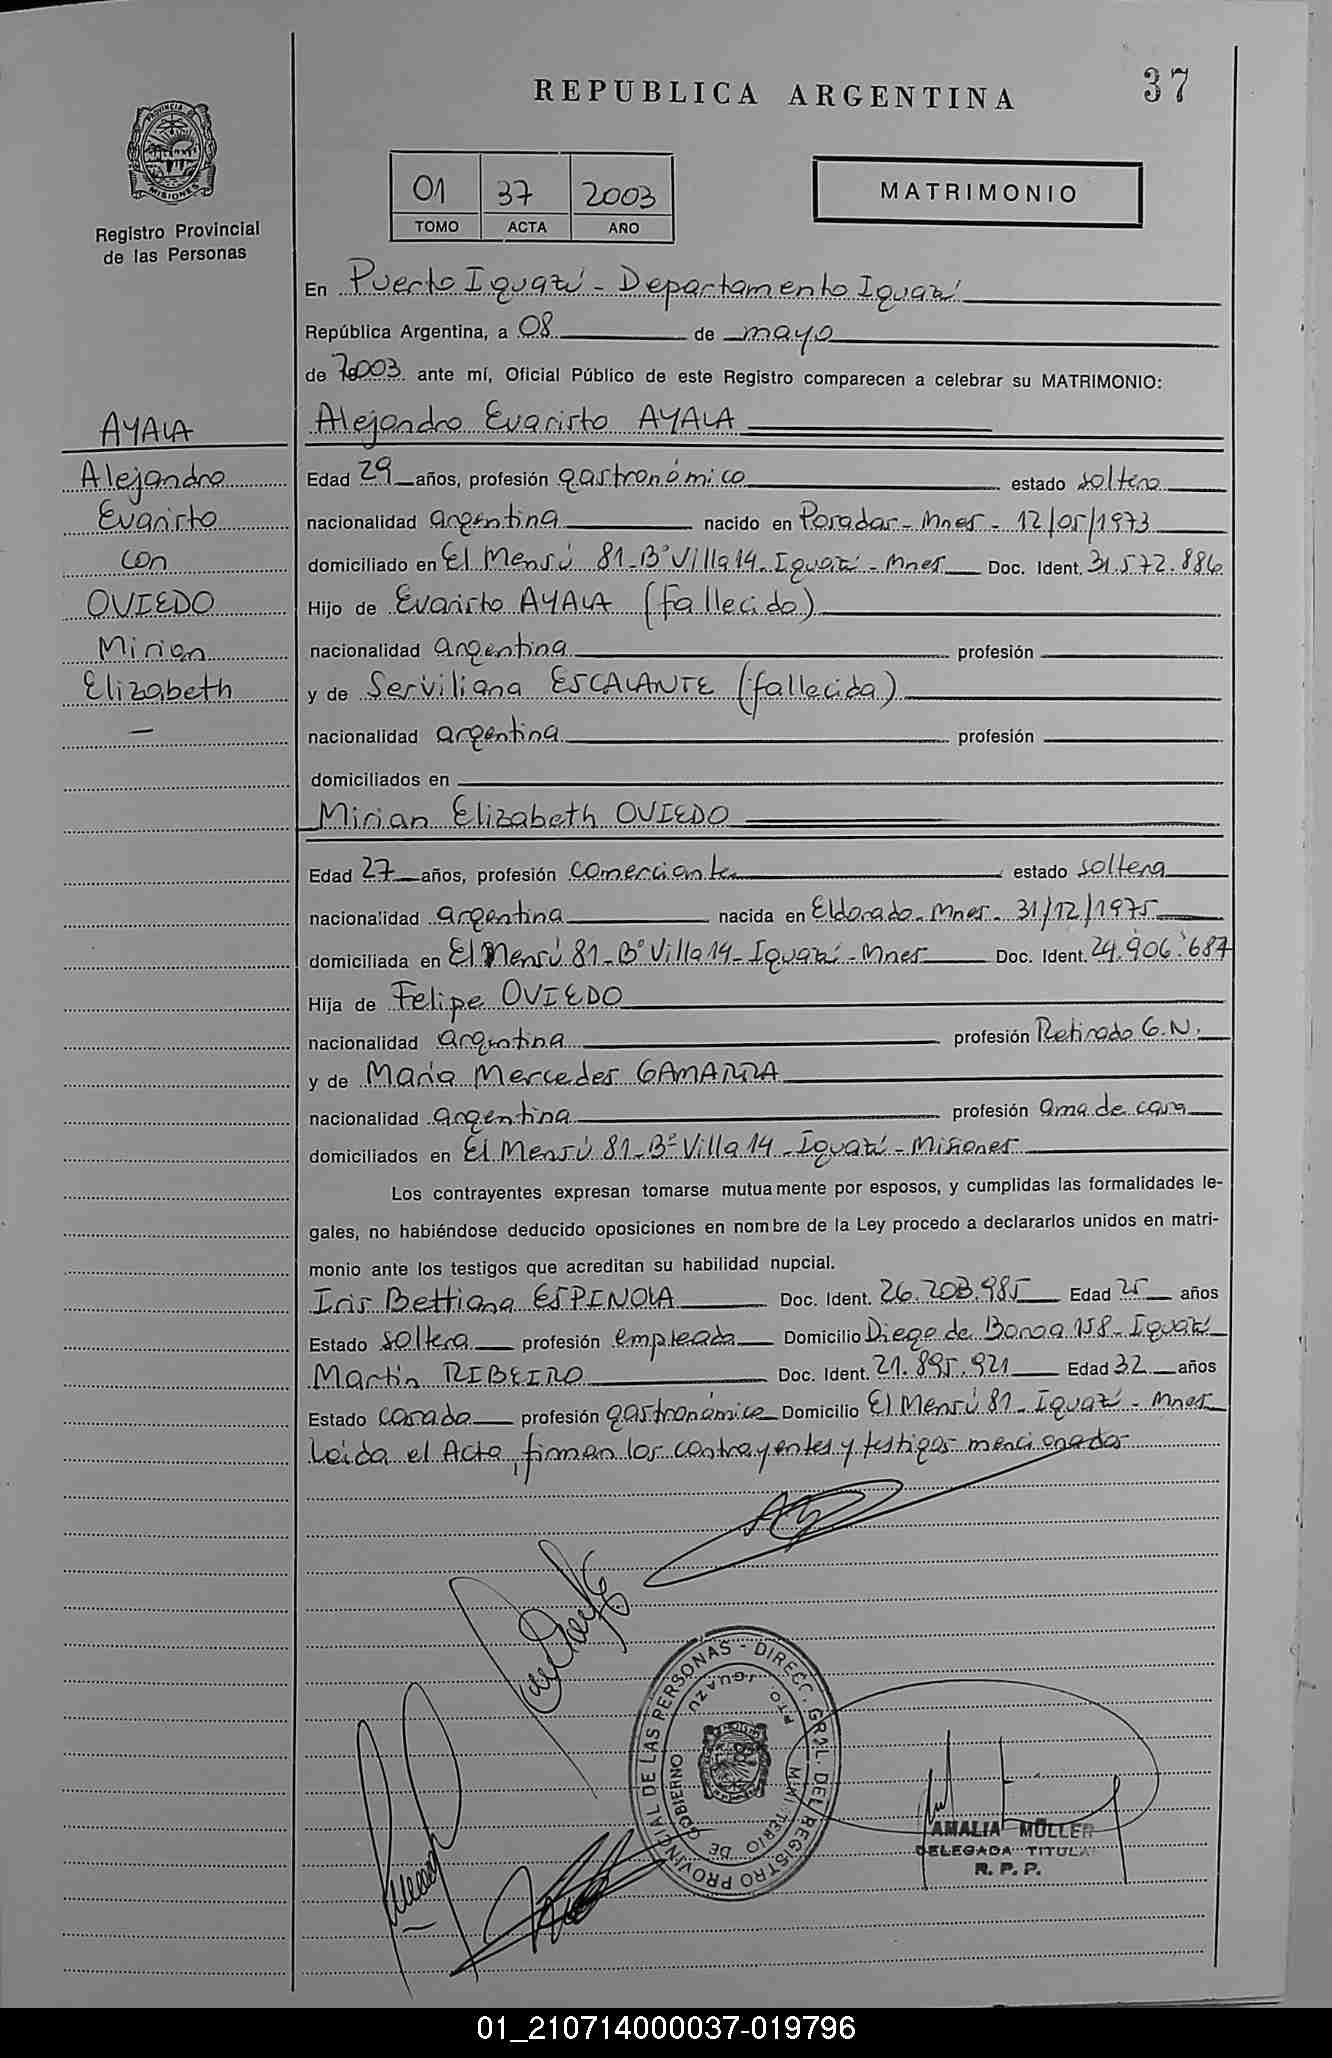 REPUBLICA ARGENTINA
37
PROVINCIA DE MISIONES
Registro Provincial
de las Personas
01 37 2003
TOMO ACTA AÑO
MATRIMONIO
En Puerto Iguazú - Departamento Iguazú
República Argentina, a 08 de mayo
de 2003 ante mí, Oficial Público de este Registro comparecen a celebrar su MATRIMONIO:
AYALA
Alejandro
Evaristo
con
OVIEDO
Mirian
Elizabeth
—
Alejandro Evaristo AYALA
Edad 29 años, profesión gastronómico estado soltero
nacionalidad argentina nacido en Posadas - Mnes - 12/05/1973
domiciliado en El Mensú 81 - Bº Villa 14 - Iguazú - Mnes Doc. Ident. 31.572.886
Hijo de Evaristo AYALA (fallecido)
nacionalidad argentina profesión
y de Serviliana ESCALANTE (fallecida)
nacionalidad argentina profesión
domiciliados en
Mirian Elizabeth OVIEDO
Edad 27 años, profesión comerciante estado soltera
nacionalidad argentina nacida en Eldorado - Mnes - 31/12/1975
domiciliada en El Mensú 81 - Bº Villa 14 - Iguazú - Mnes Doc. Ident. 24.906.687
Hija de Felipe OVIEDO
nacionalidad argentina profesión Retirado G.N.
y de María Mercedes GAMARRA
nacionalidad argentina profesión ama de casa
domiciliados en El Mensú 81 - Bº Villa 14 - Iguazú - Misiones
Los contrayentes expresan tomarse mutuamente por esposos, y cumplidas las formalidades le-
gales, no habiéndose deducido oposiciones en nombre de la Ley procedo a declararlos unidos en matri-
monio ante los testigos que acreditan su habilidad nupcial.
Iris Bettiana ESPINOLA Doc. Ident. 26.203.985 Edad 25 años
Estado soltera profesión empleada Domicilio Diego de 158 - Iguazú
Martín RIBEIRO Doc. Ident. 21.895.921 Edad 32 años
Estado casado profesión gastronómico Domicilio El Mensú 81 - Iguazú - Mnes
Leída el Acta, firman los contrayentes y testigos mencionados
DIRECC. GRAL. DEL REGISTRO PROVINCIAL DE LAS PERSONAS -
PTO. IGUAZU
MINISTERIO DE GOBIERNO
AMALIA MÜLLER
DELEGADA TITULAR
R. P. P.
01_210714000037-019796